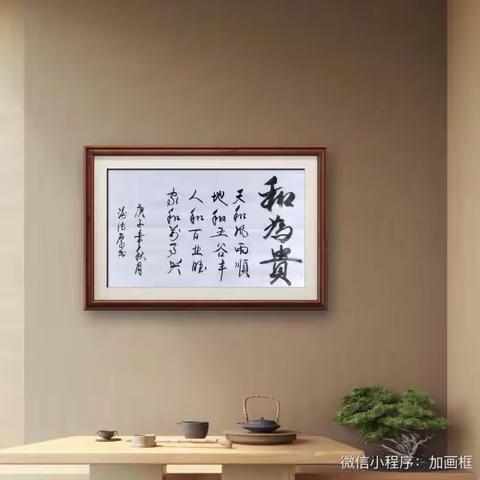 和為貴
天和风雨順
地和五谷丰
人和百业旺
家和万事兴
庚子年秋月
微信小程序：加画框